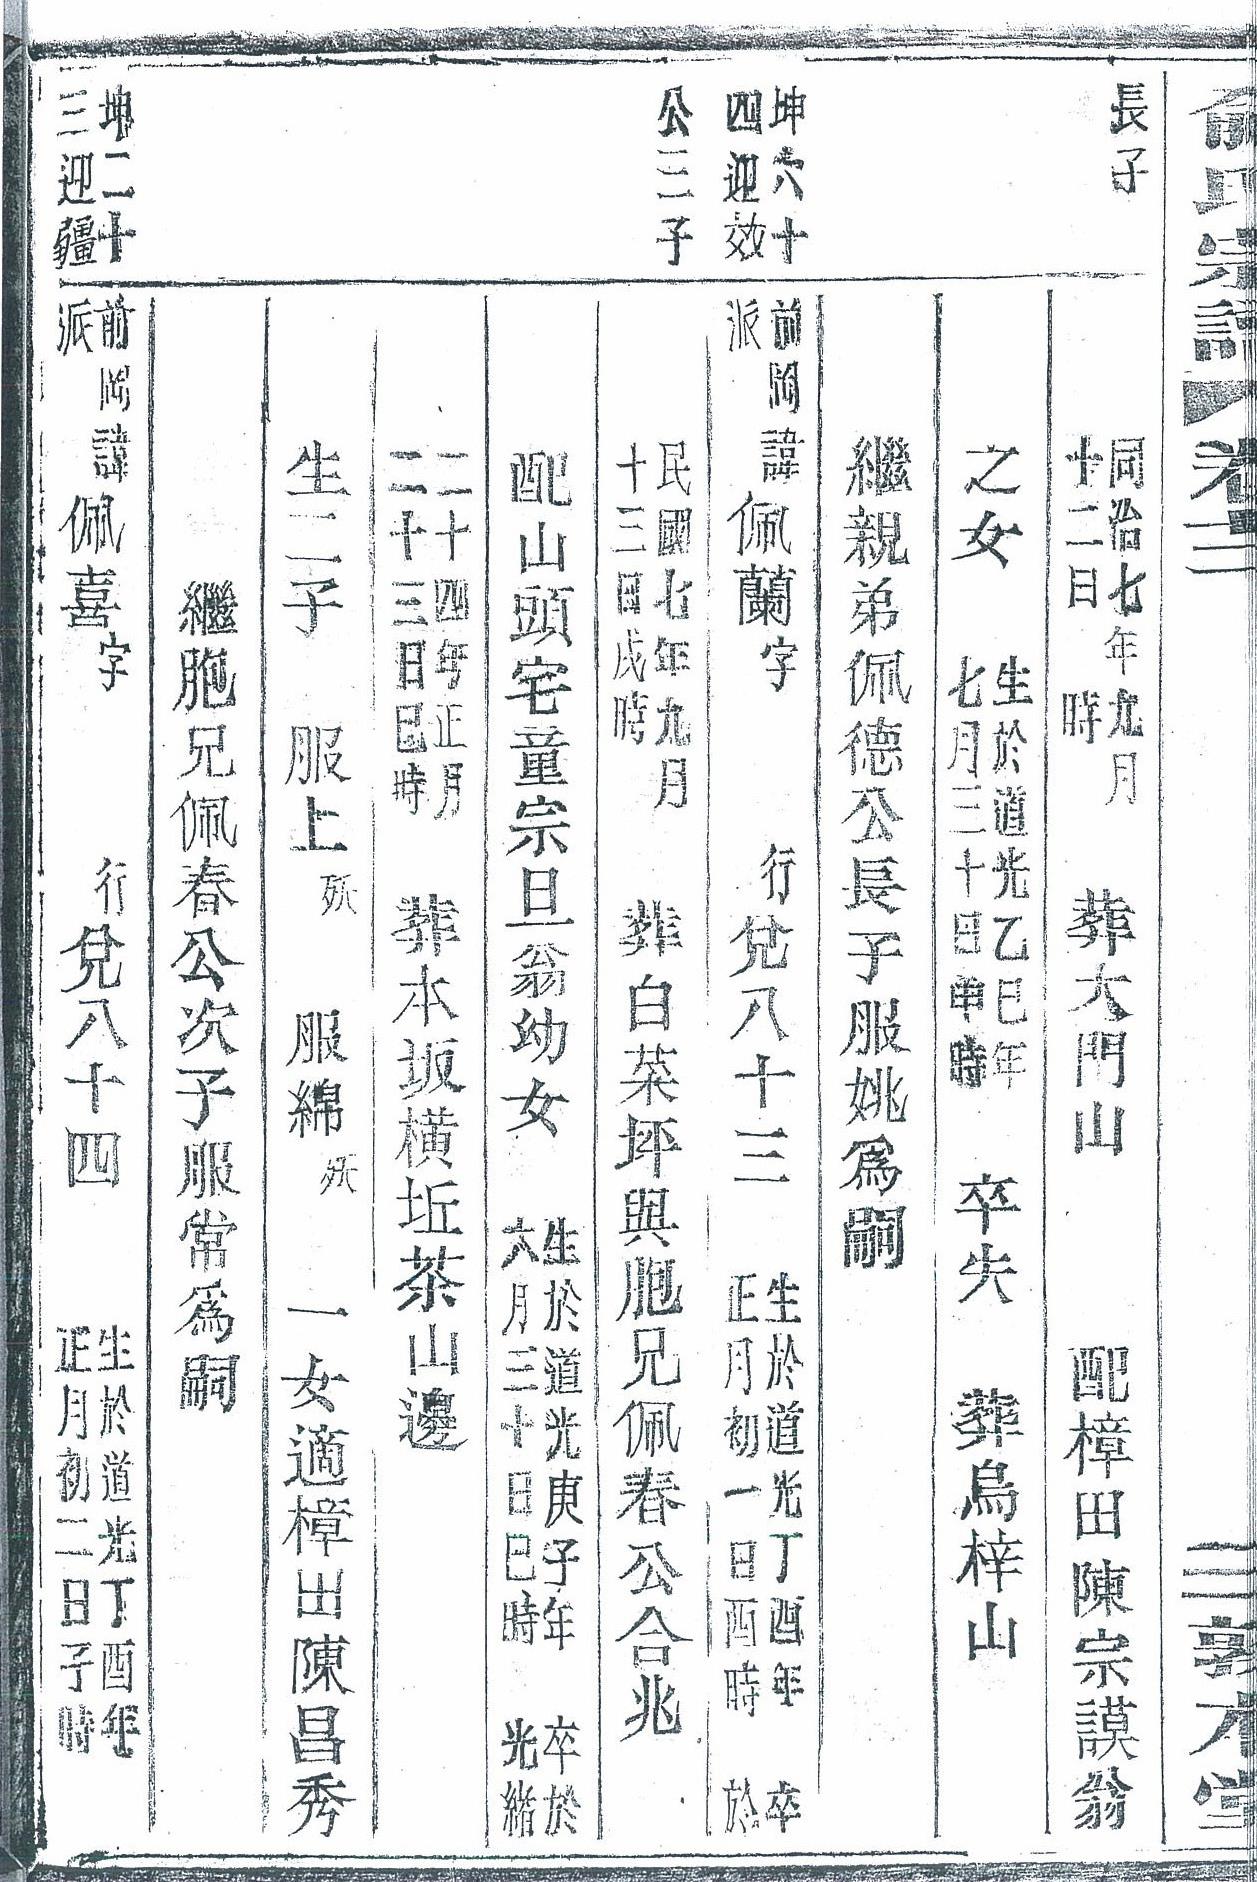 俞氏宗譜 卷三 敦本堂
長子
同治七年九月十二日 時 葬大門山 配樟田陳宗謨翁
之女 生於道光乙巳年七月三十日申時 卒失 葬烏梓山
繼親弟佩德公長子服姚爲嗣
坤六十四迎效
前岡派諱佩蘭字 行兌八十三 生於道光丁酉年正月初一日酉時 卒於
公三子
民國七年九月十三日戌時 葬白菜坪與胞兄佩春公合兆
配山頭宅童宗旦翁幼女 生於道光庚子年六月三十日巳時 卒於光緒
二十四年正月二十三日巳時 葬本坂橫坵茶山邊
生二子 服上殀 服綿殀 一女適樟田陳昌秀
繼胞兄佩春公次子服常爲嗣
坤二十三迎疆
前岡派諱佩喜字 行兌八十四 生於道光丁酉年正月初二日子時